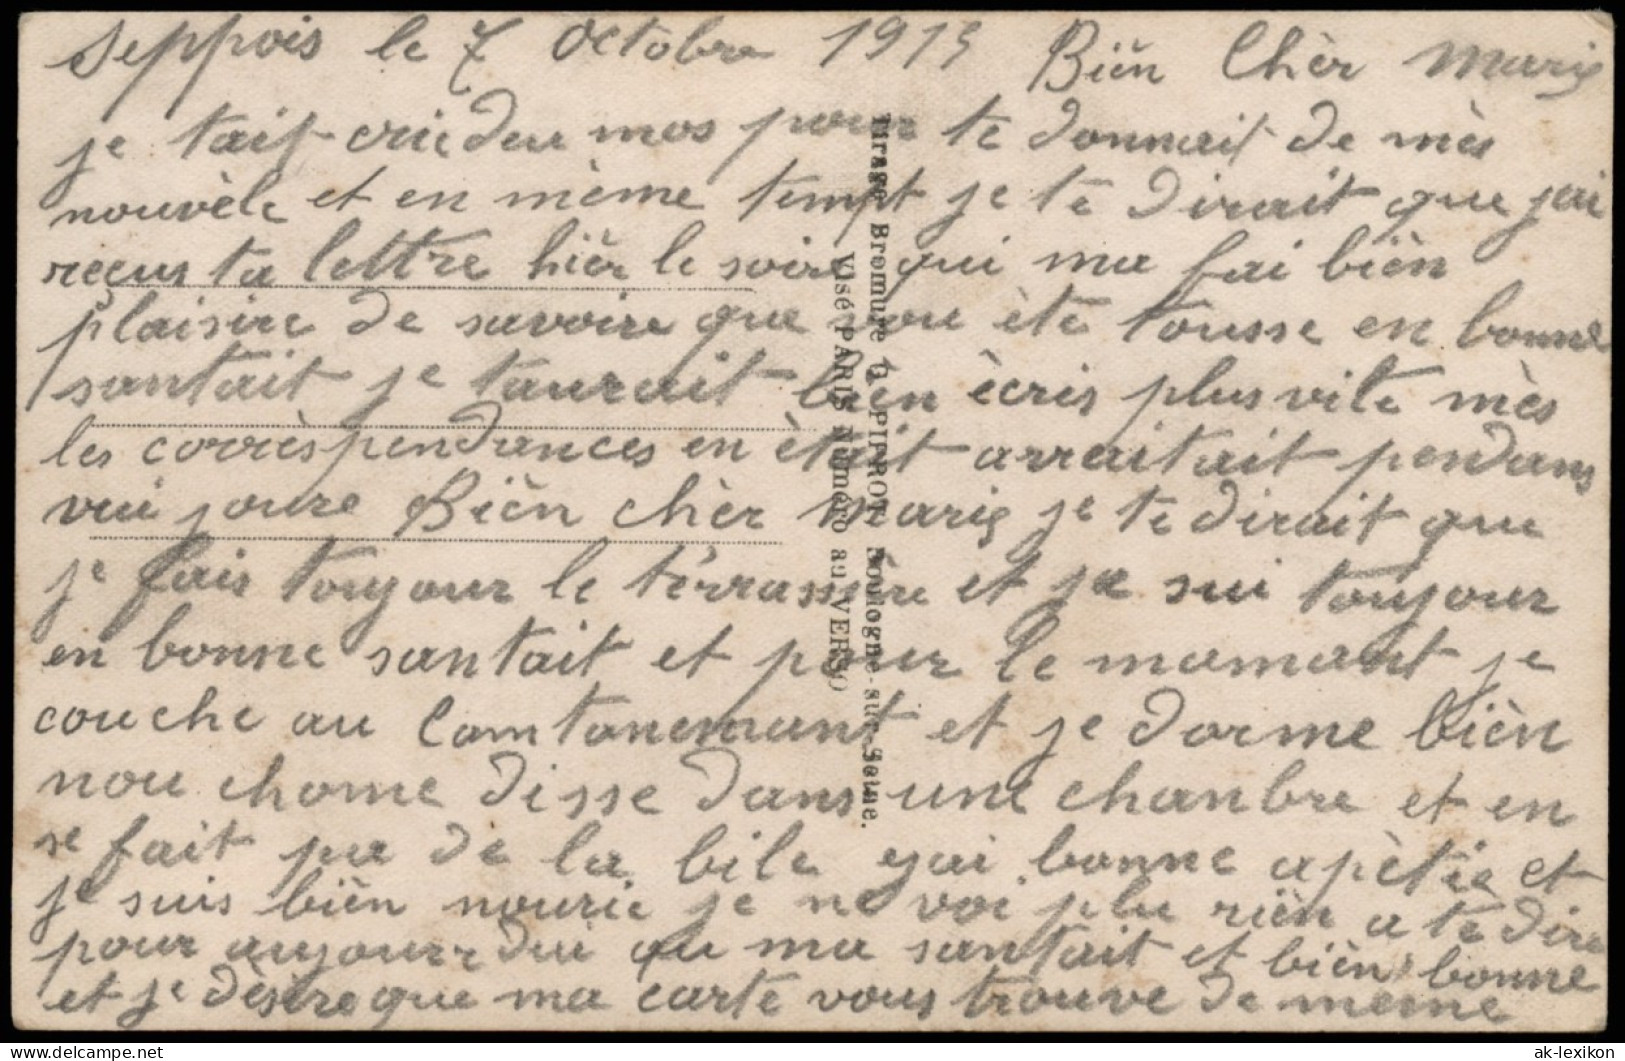 Seppois le 7 octobre 1915 Bièn Chèr Marie
je tait crideu mos pour te donnait de mès
nouvèle et en mème tempt je te dirait que jai
reçus ta lettre hièr le soire qui ma fai bièn
plaisire de savoire que vou ète tousse en bonne
santait je taurait bièn ècris plus vite mès
les corrèspendances en ètait arraitait pendans
vui joure Bièn chèr marie je te dirait que
je fais toujour le tèrrassière et je sui toujour
en bonne santait et pour le momant je
couche au Camtonemant et je dorme bièn
nou chome disse dans une chanbre et en
se fait pa de la bile yai bonne apètie et
je suis bièn nourie je ne voi plu rièn a te dire
pour aujourdui qu ma santait et bièn bonne
et je dèsire que ma carte vous trouve de meme
Tirage Bromure G. PIPROT, Boulogne-sur-Seine.
Visé PARIS Numéro au VERSO
ak-lexikon.com